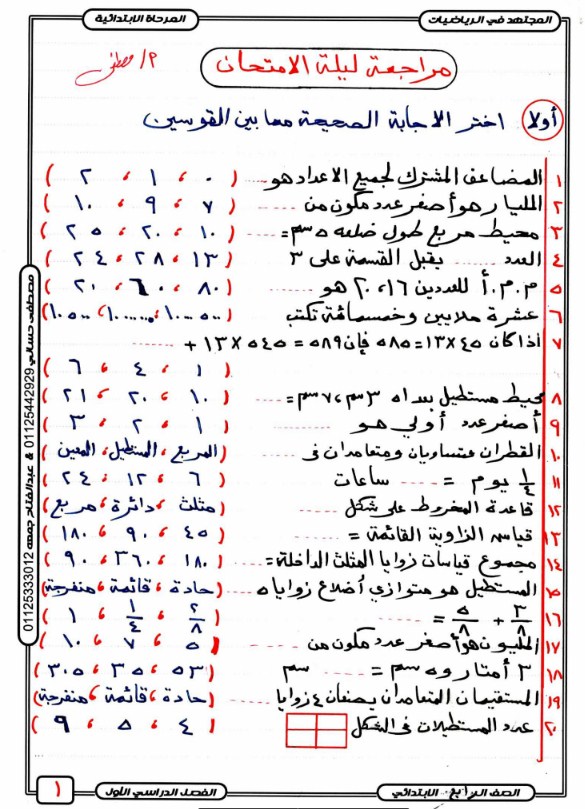 المجتهد في الرياضيات
المرحلة الابتدائية
مراجعة ليلة الامتحان
م/ مصطفى
أولا اختر الاجابة الصحيحة مما بين القوسين
١ المضاعف المشترك لجميع الاعداد هو ...... ( ٠ ، ١ ، ٢ )
٢ المليار هو أصغر عدد مكون من ...... ( ٧ ، ٩ ، ١٠ )
٣ محيط مربع طول ضلعه ٥ سم = ...... ( ١٠ ، ٢٠ ، ٢٥ )
٤ العدد ...... يقبل القسمة على ٣ ( ١٣ ، ٢٨ ، ٢٤ )
٥ م.م.أ للعددين ١٦ ، ٢٠ هو ...... ( ٨٠ ، ٦٠ ، ٢٠ )
٦ عشرة ملايين وخمسمائة تكتب
٧ اذا كان ٤٥ × ١٣ = ٥٨٥ فإن ٥٨٩ = ٤٥ × ١٣ +
( ١ ، ٤ ، ٦ )
٨ محيط مستطيل بعداه ٣ سم ، ٧ سم = ( ١٠ ، ٢٠ ، ٢١ )
٩ أصغر عدد أولي هو ...... ( ١ ، ٢ ، ٣ )
١٠ القطران متساويان ومتعامدان في ( المربع ، المستطيل ، المعين )
١١ ١/٤ يوم = ...... ساعات ( ٦ ، ١٢ ، ٢٤ )
١٢ قاعدة المخروط على شكل ( مثلث ، دائرة ، مربع )
١٣ قياس الزاوية القائمة = ...... ( ٤٥ ، ٩٠ ، ١٨٠ )
١٤ مجموع قياسات زوايا المثلث الداخلة = ( ١٨٠ ، ٣٦٠ ، ٩٠ )
١٥ المستطيل هو متوازي أضلاع زواياه ( حادة ، قائمة ، منفرجة )
١٦ ٣/٨ + ٥/٨ = ...... ( ٢/٨ ، ١/٤ ، ١ )
١٧ المليون هو أصغر عدد مكون من ( ٥ ، ٧ ، ١٠ )
١٨ ٣ أمتار و ٥ سم = ...... سم ( ٥٣ ، ٣٥ ، ٣٠٥ )
١٩ المستقيمان المتعامدان يصنعان ٤ زوايا ( حادة ، قائمة ، منفرجة )
٢٠ عدد المستطيلات في الشكل ( ٤ ، ٥ ، ٩ )
مصطفى حساني 01125442929 & عبدالفتاح جمعه 01125333012
الصف الرابع الابتدائي
الفصل الدراسي الأول
١